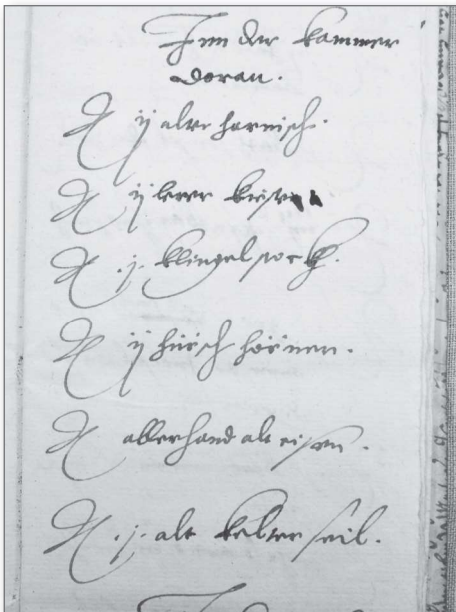 Inn der kammer
doran.
It ij alte harnisch.
It ij lerer kisten
It .j. klingel sock.
It ij hirsch hörnen.
It allerhand alt eisen.
It .j. alt kelter seil.